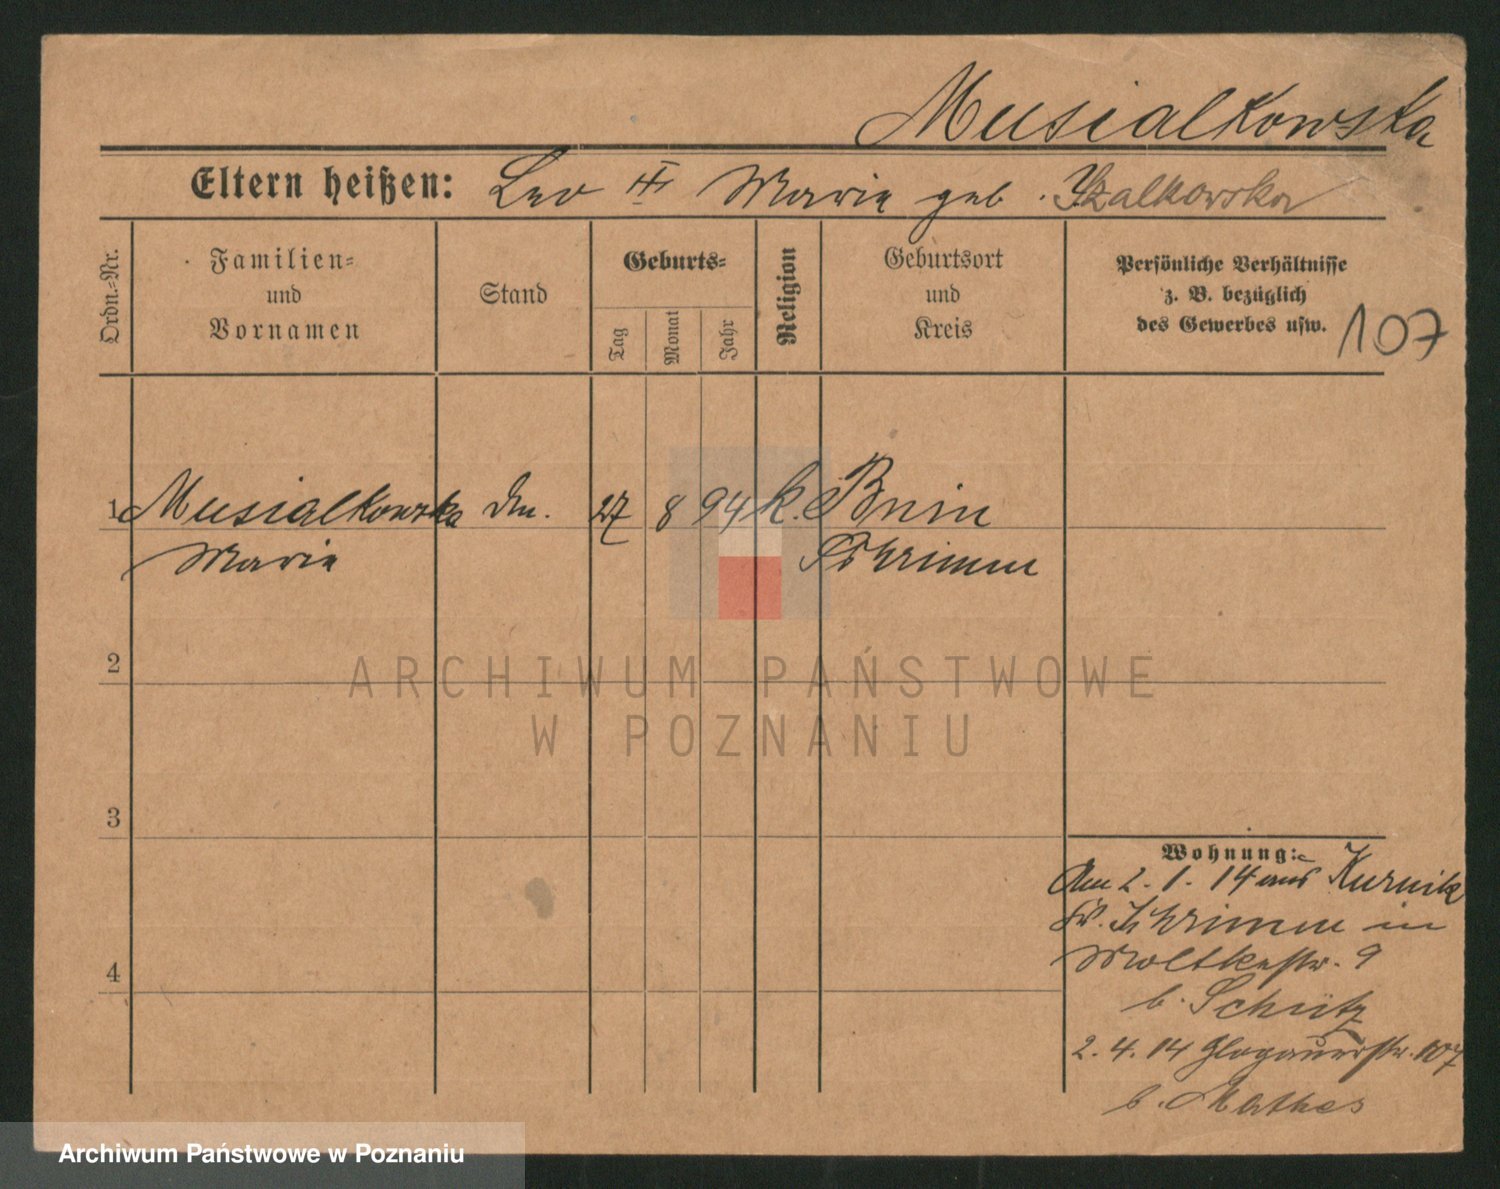 Musialkowska
Eltern heißen: Leo Marie geb. Szalkowska
Ordn.-Nr.
Familien-
und
Vornamen
Stand
Geburts-
Tag
Monat
Jahr
Religion
Geburtsort
und
Kreis
Persönliche Verhältnisse
z. B. bezüglich
des Gewerbes usw.
107
1 Musialkowska Dm. 27 8 94 k. Bnin
Marie Schrimm
2
3
4
ARCHIWUM PAŃSTWOWE
W POZNANIU
Wohnung:
Am 2. 1. 14 aus Kurnik
Schrimm in
Moltkestr. 9
b. Schütz
2. 4. 14 Glogauerstr. 107
b. Mathes
Archiwum Państwowe w Poznaniu